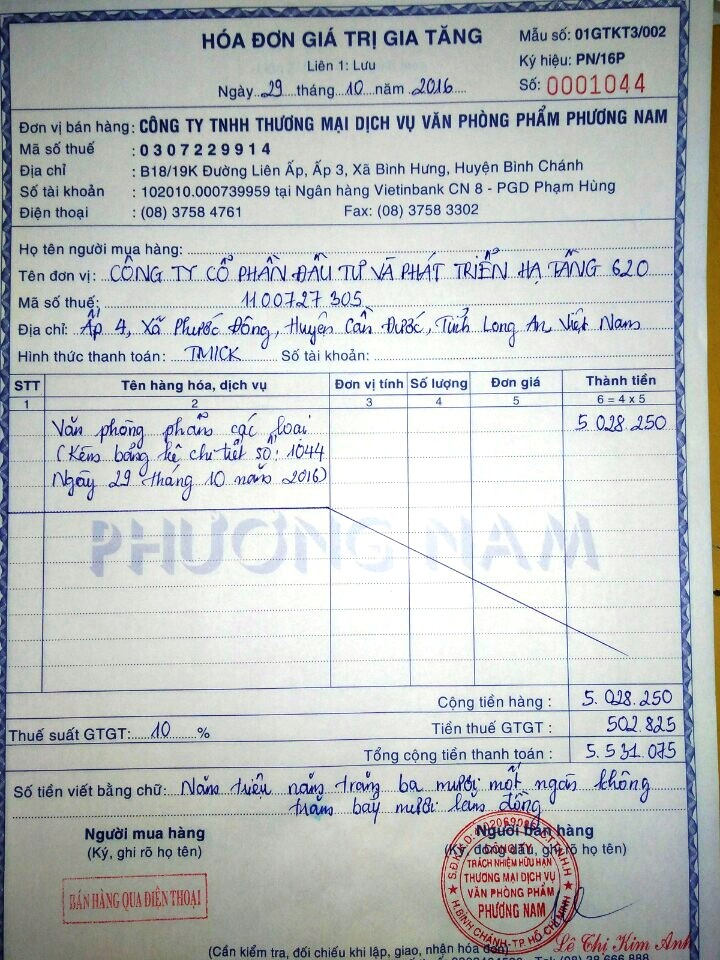 HÓA ĐƠN GIÁ TRỊ GIA TĂNG
Mẫu số: 01GTKT3/002
Liên 1: Lưu
Ký hiệu: PN/16P
Ngày 29 tháng 10 năm 2016
Số: 0001044
Đơn vị bán hàng: CÔNG TY TNHH THƯƠNG MẠI DỊCH VỤ VĂN PHÒNG PHẨM PHƯƠNG NAM
Mã số thuế : 0307229914
Địa chỉ : B18/19K Đường Liên Ấp, Ấp 3, Xã Bình Hưng, Huyện Bình Chánh
Số tài khoản : 102010.000739959 tại Ngân hàng Vietinbank CN 8 - PGD Phạm Hùng
Điện thoại : (08) 3758 4761 Fax: (08) 3758 3302
Họ tên người mua hàng:
Tên đơn vị: CÔNG TY CỔ PHẦN ĐẦU TƯ VÀ PHÁT TRIỂN HẠ TẦNG 620
Mã số thuế: 1100727305
Địa chỉ: Ấp 4, Xã Phước Đông, Huyện Cần Đước, Tỉnh Long An, Việt Nam
Hình thức thanh toán: TM/CK Số tài khoản:
STT Tên hàng hóa, dịch vụ Đơn vị tính Số lượng Đơn giá Thành tiền
1 2 3 4 5 6 = 4 x 5
Văn phòng phẩm các loại 5.028.250
(Kèm bảng kê chi tiết số: 1044
Ngày 29 tháng 10 năm 2016)
PHƯƠNG NAM
Cộng tiền hàng : 5.028.250
Thuế suất GTGT: 10 % Tiền thuế GTGT : 502.825
Tổng cộng tiền thanh toán : 5.531.075
Số tiền viết bằng chữ: Năm triệu năm trăm ba mươi một ngàn không
trăm bảy mươi lăm đồng
Người mua hàng Người bán hàng
(Ký, ghi rõ họ tên) (Ký, đóng dấu, ghi rõ họ tên)
BÁN HÀNG QUA ĐIỆN THOẠI
CÔNG TY
TRÁCH NHIỆM HỮU HẠN
THƯƠNG MẠI DỊCH VỤ
VĂN PHÒNG PHẨM
PHƯƠNG NAM
H.BÌNH CHÁNH-TP.HỒ CHÍ MINH
Lê Thị Kim Anh
(Cần kiểm tra, đối chiếu khi lập, giao, nhận hóa đơn)